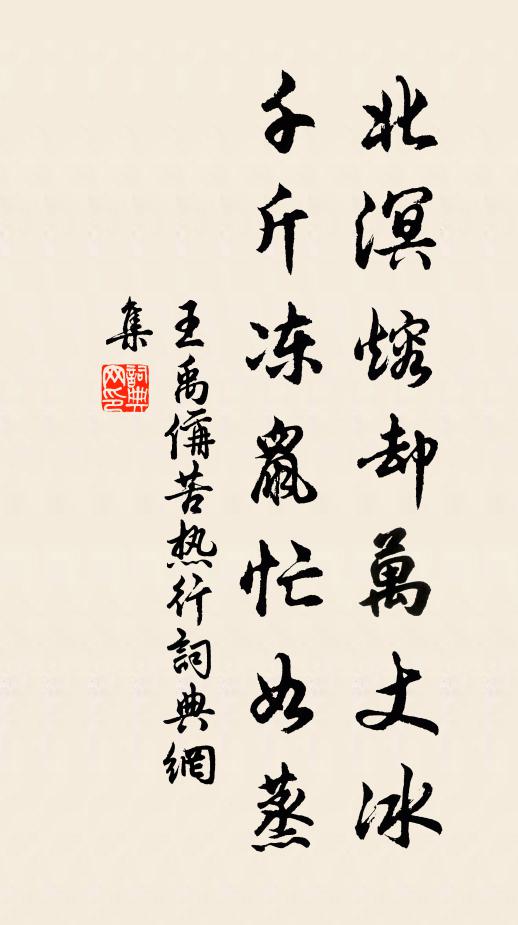 北溟熔却萬丈冰
千斤冻鼠忙如蒸
王禹偁苦热行詞典網
集
詞典
网印